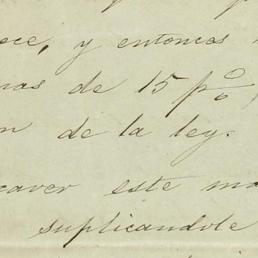 ece, y entonces
mas de 15 p%,
n de la ley.
caver este ma
suplicandole